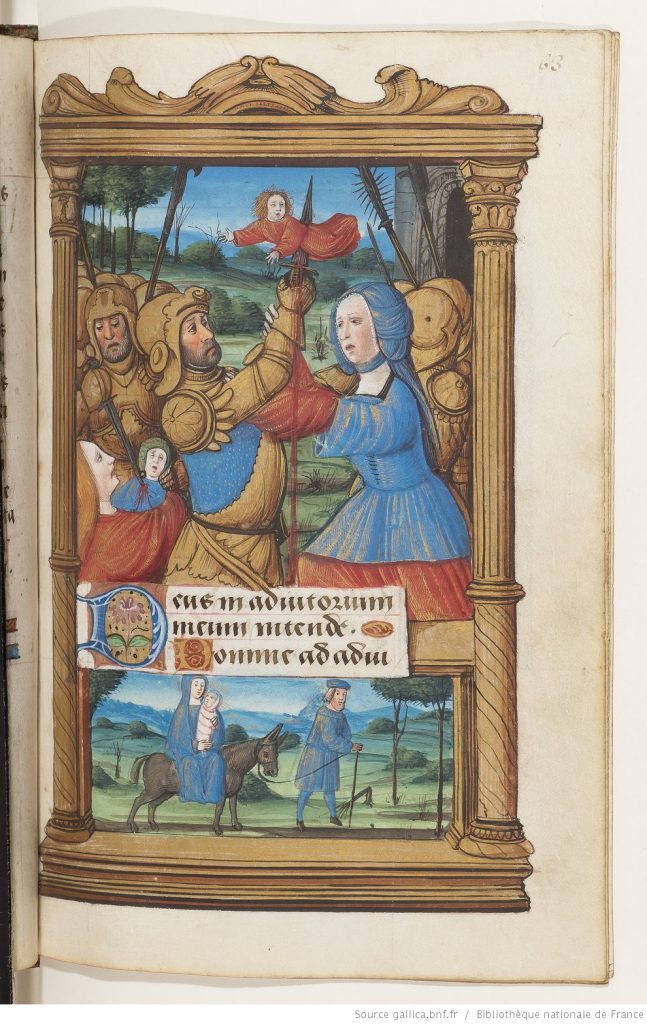 63
Deus in adiutorium
meum intende.
Domine ad adiu
Source gallica.bnf.fr / Bibliothèque nationale de France